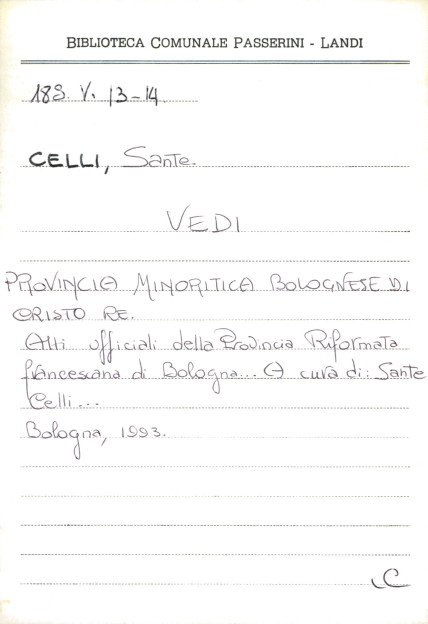 BIBLIOTECA COMUNALE PASSERINI - LANDI
188. V. 13-14
CELLI, Sante.
VEDI
PROVINCIA MINORITICA BOLOGNESE DI
CRISTO RE.
Atti ufficiali della Provincia Riformata
francescana di Bologna... A cura di: Sante
Celli...
Bologna, 1993.
C